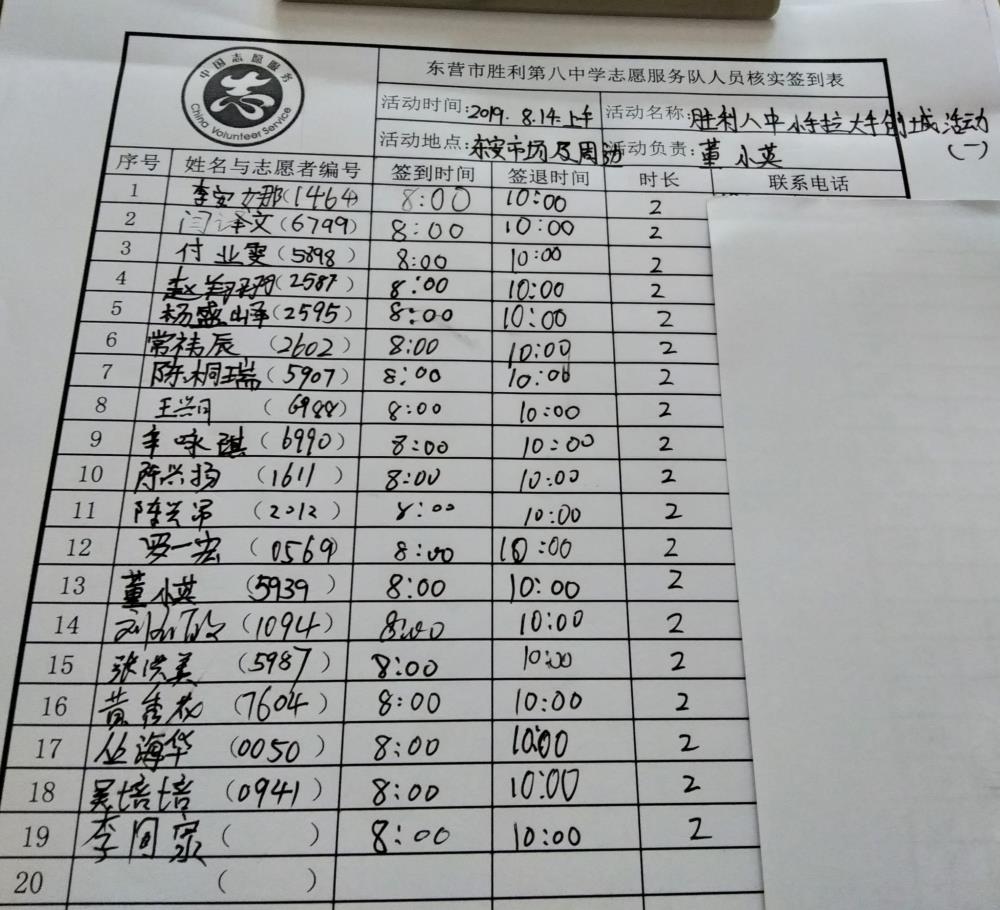 中国志愿服务
China Volunteer Service
东营市胜利第八中学志愿服务队人员核实签到表
活动时间:2019. 8.14上午 活动名称:胜利八中小手拉大手创城活动(一)
活动地点:东安市场及周边 活动负责:董小英
序号 姓名与志愿者编号 签到时间 签退时间 时长 联系电话
1 李安娜(1464) 8:00 10:00 2
2 闫译文(6799) 8:00 10:00 2
3 付业雯(5898) 8:00 10:00 2
4 赵(2587) 8:00 10:00 2
5 杨盛峄(2595) 8:00 10:00 2
6 常祎辰(2602) 8:00 10:00 2
7 陈桐瑞(5907) 8:00 10:00 2
8 王兴同(6988) 8:00 10:00 2
9 辛咏琪(6990) 8:00 10:00 2
10 陈兴扬(1611) 8:00 10:00 2
11 陈兴帛(2012) 8:00 10:00 2
12 罗一宏(0569) 8:00 10:00 2
13 董小英(5939) 8:00 10:00 2
14 刘(1094) 8:00 10:00 2
15 张洪美(5987) 8:00 10:00 2
16 黄秀花(7604) 8:00 10:00 2
17 丛海华(0050) 8:00 10:00 2
18 吴培培(0941) 8:00 10:00 2
19 李同泉( ) 8:00 10:00 2
20 ( )